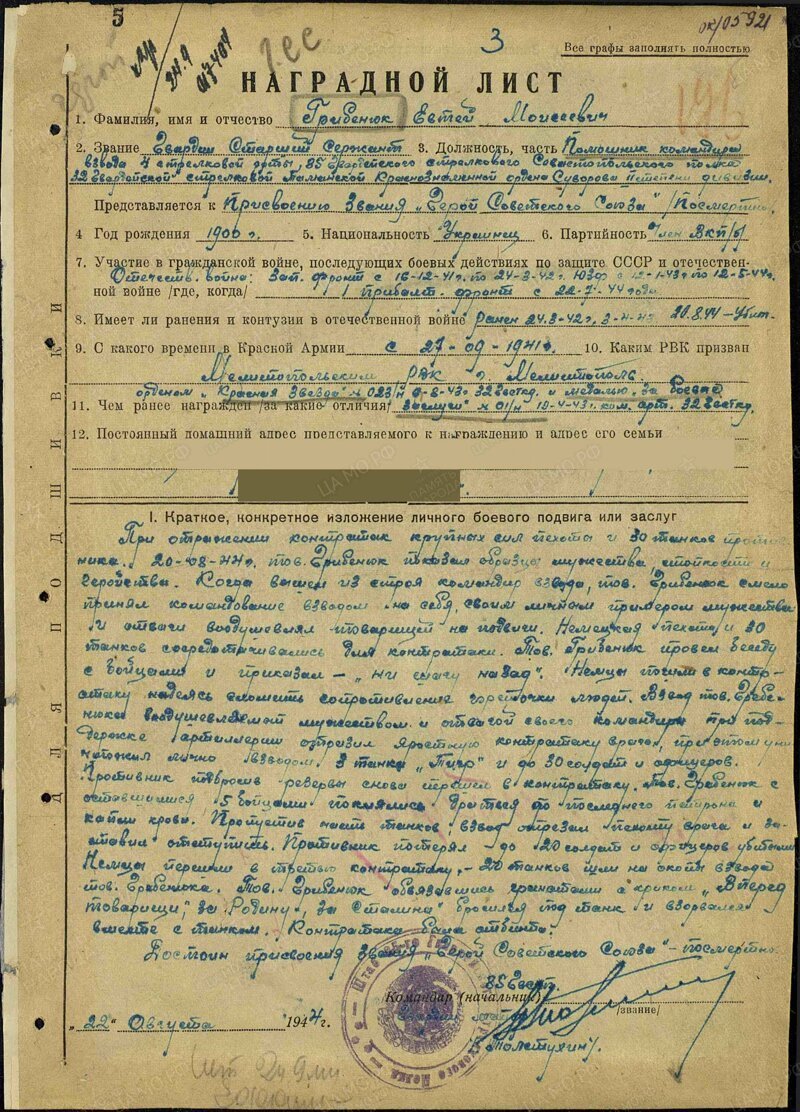 5
3
ок/05921
Все графы заполнять полностью
НАГРАДНОЙ ЛИСТ
1. Фамилия, имя и отчество Грибенюк Евтей Моисеевич
2. Звание Гвардии Старший Сержант 3. Должность, часть Помощник командира
взвода 4 стрелковой роты, 85 Гвардейского стрелкового Севастопольского полка
32 Гвардейской стрелковой Таманской Краснознаменной ордена Суворова II степени дивизии.
Представляется к Присвоению Звания „Герой Советского Союза" /Посмертно/
4 Год рождения 1900 г. 5. Национальность Украинец 6. Партийность Член ВКП/б/
7. Участие в гражданской войне, последующих боевых действиях по защите СССР и отечествен-
Отечеств. война: Зап. фронт с 16-12-41г. по 24-3-42г. ЮЗФ с 12-1-43г по 12-5-44г.
ной войне /где, когда/ 1 Прибалт. фронт с 22-7-44 года
8. Имеет ли ранения и контузии в отечественной войне Ранен 24.3-42г, 20.8.44-убит.
9. С какого времени в Красной Армии с 27-09-1941г. 10. Каким РВК призван
Мелитопольским РВК г. Мелитополь
орденом „Красная Звезда" № 023/н 6-8-43г 32 Гв стк, и медалью „за боевые
11. Чем ранее награжден /за какие отличия/ заслуги" № 01/н 10-4-43г. ком. арт. 32 Гв стк,
12. Постоянный домашний адрес представляемого к награждению и адрес его семьи
I. Краткое, конкретное изложение личного боевого подвига или заслуг
При отражении контратак крупных сил пехоты и 30 танков против-
ника. 20-08-44г. тов. Грибенюк показал образцы мужества, стойкости и
геройства. Когда вышел из строя командир взвода, тов. Грибенюк смело
принял командование взводом на себя, своим личным примером мужества
и отваги воодушевлял товарищей на подвиги. Немецкая пехота и 30
танков сосредотачивались для контратаки. Тов. Грибенюк провел беседу
с бойцами и приказал – „ни шагу назад". Немцы пошли в контр-
атаку надеясь сломить сопротивление горсточки людей. Взвод тов. Грибе-
нюка воодушевляемый мужеством и отвагой своего командира при под-
держке артиллерии отразил яростную контратаку врага, при этом уни-
чтожил лично взводом 3 танка „Тигр" и до 30 солдат и офицеров.
Противник подбросив резервы снова перешел в контратаку. Тов. Грибенюк с
оставшимися 5 бойцами поклялись драться до последнего патрона и
капли крови. Пропустив часть танков, взвод отрезал пехоту врага и за-
ставил отступить. Противник потерял до 20 солдат и офицеров убитыми
Немцы перешли в третью контратаку, – 20 танков шли на окопы взвода
тов. Грибенюка. Тов. Грибенюк обвязавшись гранатами с криком „Вперед
товарищи, за Родину, за Сталина" бросился под танк и взорвался
вместе с танком. Контратака была отбита.
Достоин присвоения Звания „Герой Советского Союза" – посмертно
85 Гвсп.
Командир (начальник)
/звание/
„22" Августа 1944 г.
/Толстухин/.
ДЛЯ ПОДШИВКИ